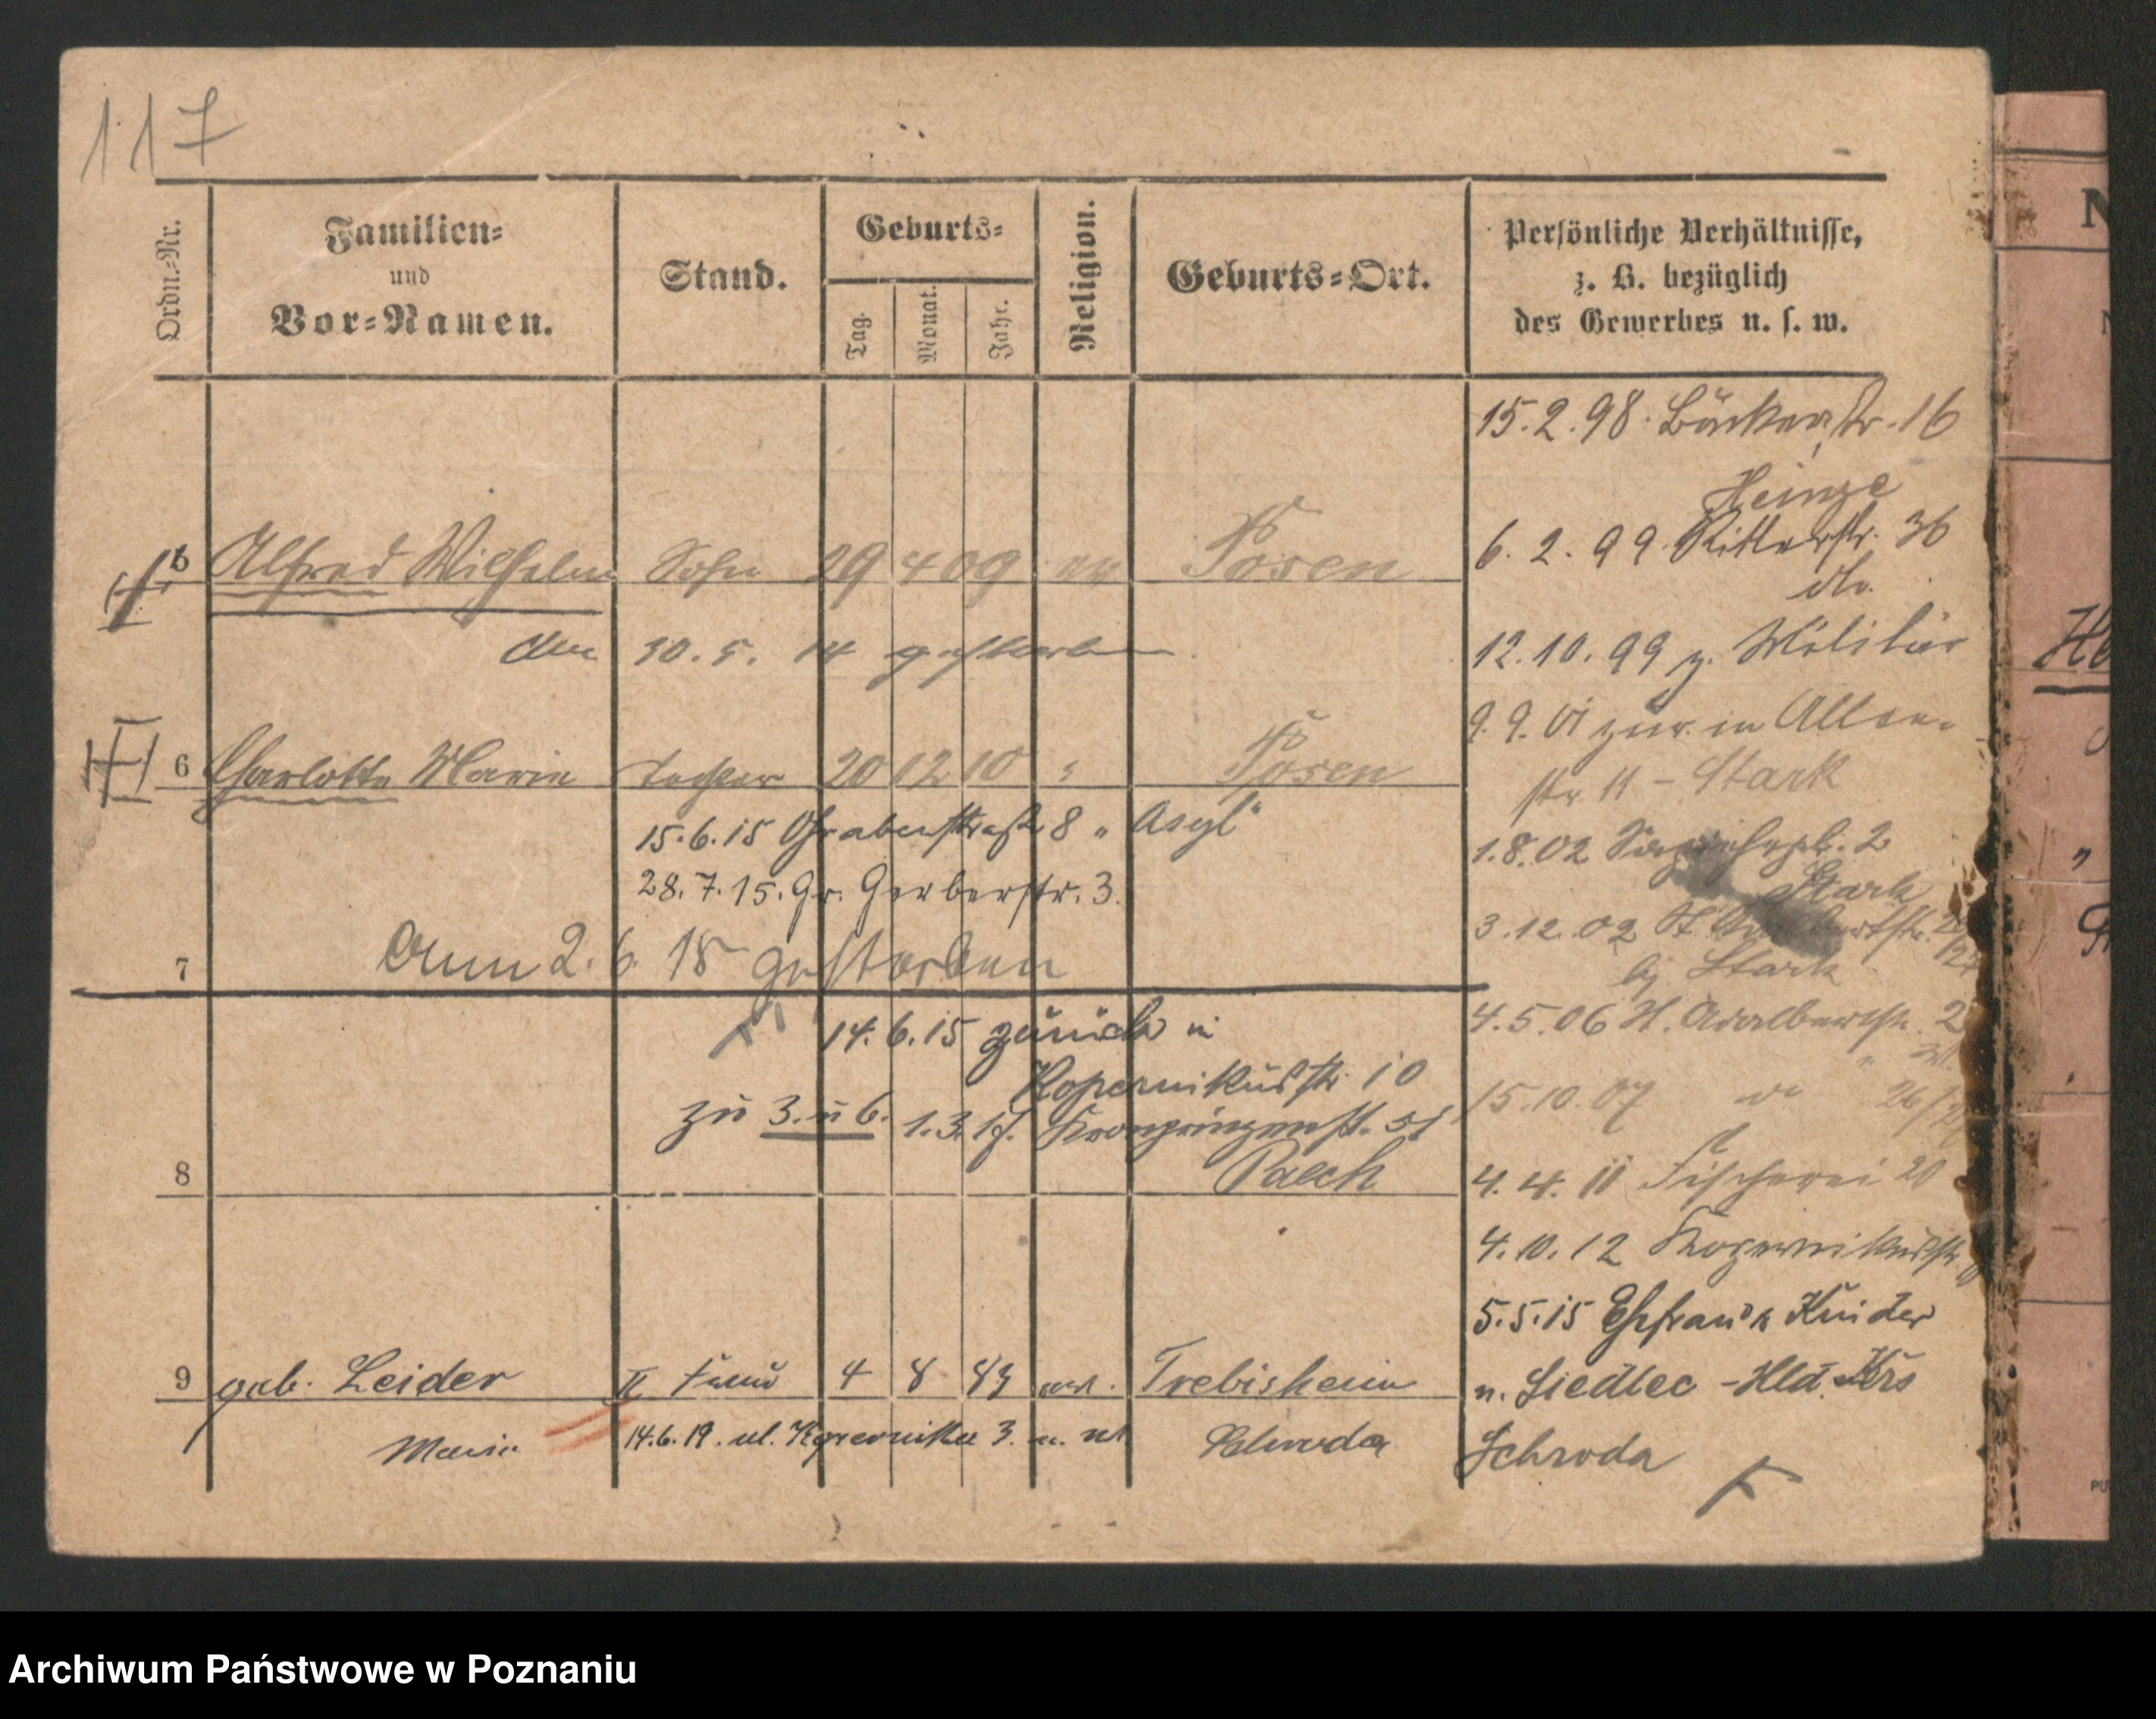 117
Ordn.-Nr.
Familien-
und
Vor-Namen.
Stand.
Geburts-
Tag.
Monat.
Jahr.
Religion.
Geburts-Ort.
Persönliche Verhältnisse,
z. B. bezüglich
des Gewerbes u. s. w.
15.2.98. Bäckerstr. 16
Heinze
6.2.99. Ritterstr. 36
12.10.99 z. Militär
9.9.01 zur. in
str. 11 - Stark
1.8.02 2
Stark
3.12.02
Stark
4.5.06 Adalbertstr. 2
15.10.07 26/27
4.4.11 Fischerei 20
4.10.12 Kopernikusstr
5.5.15 Ehefrau u Kinder
n. Siedlec - Hld. Krs
Schroda
Alfred Wilhelm Sohn 29 4 09 ev Posen
am 30.5.14 gestorben
6 Charlotte Marie Tochter 20 12 10 " Posen
15.6.15 Grabenstraße 8 „Asyl"
28.7.15. Gr. Gerberstr. 3.
7 Am 2.6.15 gestorben
14.6.15 zurück in
Kopernikusstr. 10
zu 3. u 6. 1.3.17. Kronprinzenst. 51
Paech
8
9 geb. Leider II Frau 4 8 83 Trebisheim
Maria 14.6.19. ul. Kopernika 3. Schroda
N
PU
Archiwum Państwowe w Poznaniu